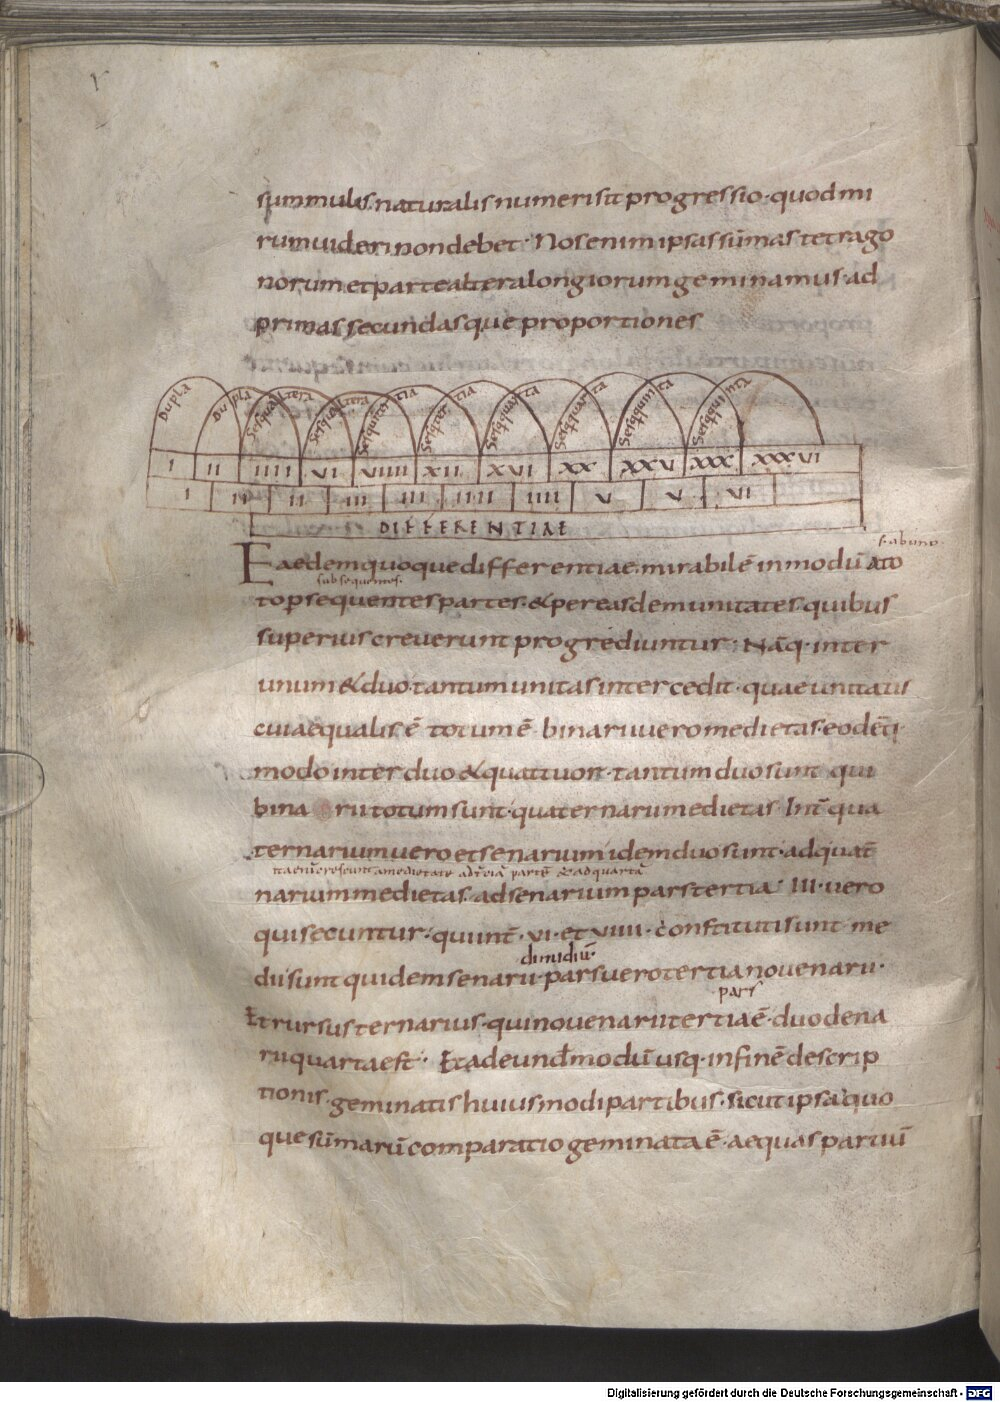 summulis naturalis numeri sit progressio · quod mi
rum uideri non debet · Nos enim ipsas sūmas tetrago
norum et parte altera longiorum geminamus · ad
primas secundasque proportiones
Dupla Dupla Sesqualtera Sesqualtera Sesquitertia Sesqtertia Sesqquarta Sesqquarta Sesqquinta Sesqquinta
I II IIII VI VIIII XII XVI XX XXV XXX XXXVI
I II II III III IIII IIII V V VI
DIFFERENTIAE
s· ab uno·
Eaedem quoque differentiae · mirabilē in modū ato
subsequentes·
to p sequentes partes · & per easdem unitates · quibus
superius creuerunt progrediuntur · Nāq· inter
unum & duo · tantum unitas intercedit · quae unitatis
cui aequalis ē totum ē · binarii uero medietas · eodē
modo inter duo & quattuor · tantum duo sunt qui
bina rii totum sunt · quaternarii medietas Int̄ qua
ternarium uero et senarium · idem duo sunt · ad quat̄
narium medietas · ad senarium pars tertia · III · uero
qui secuntur · qui int̄ · VI · et VIIII · constituti sunt me
dimidiū·
dii sunt quidem senarii · pars uero tertia nouenarii ·
pars
Et rursus ternarius · qui nouenarii tertia ē · duodena
rii quarta est · Et ad eundē modū usq· in finē descrip
tionis · geminatis huiusmodi partibus · sicut ipsa quo
que sūmarū comparatio geminata ē · aequas partiū
Digitalisierung gefördert durch die Deutsche Forschungsgemeinschaft - DFG